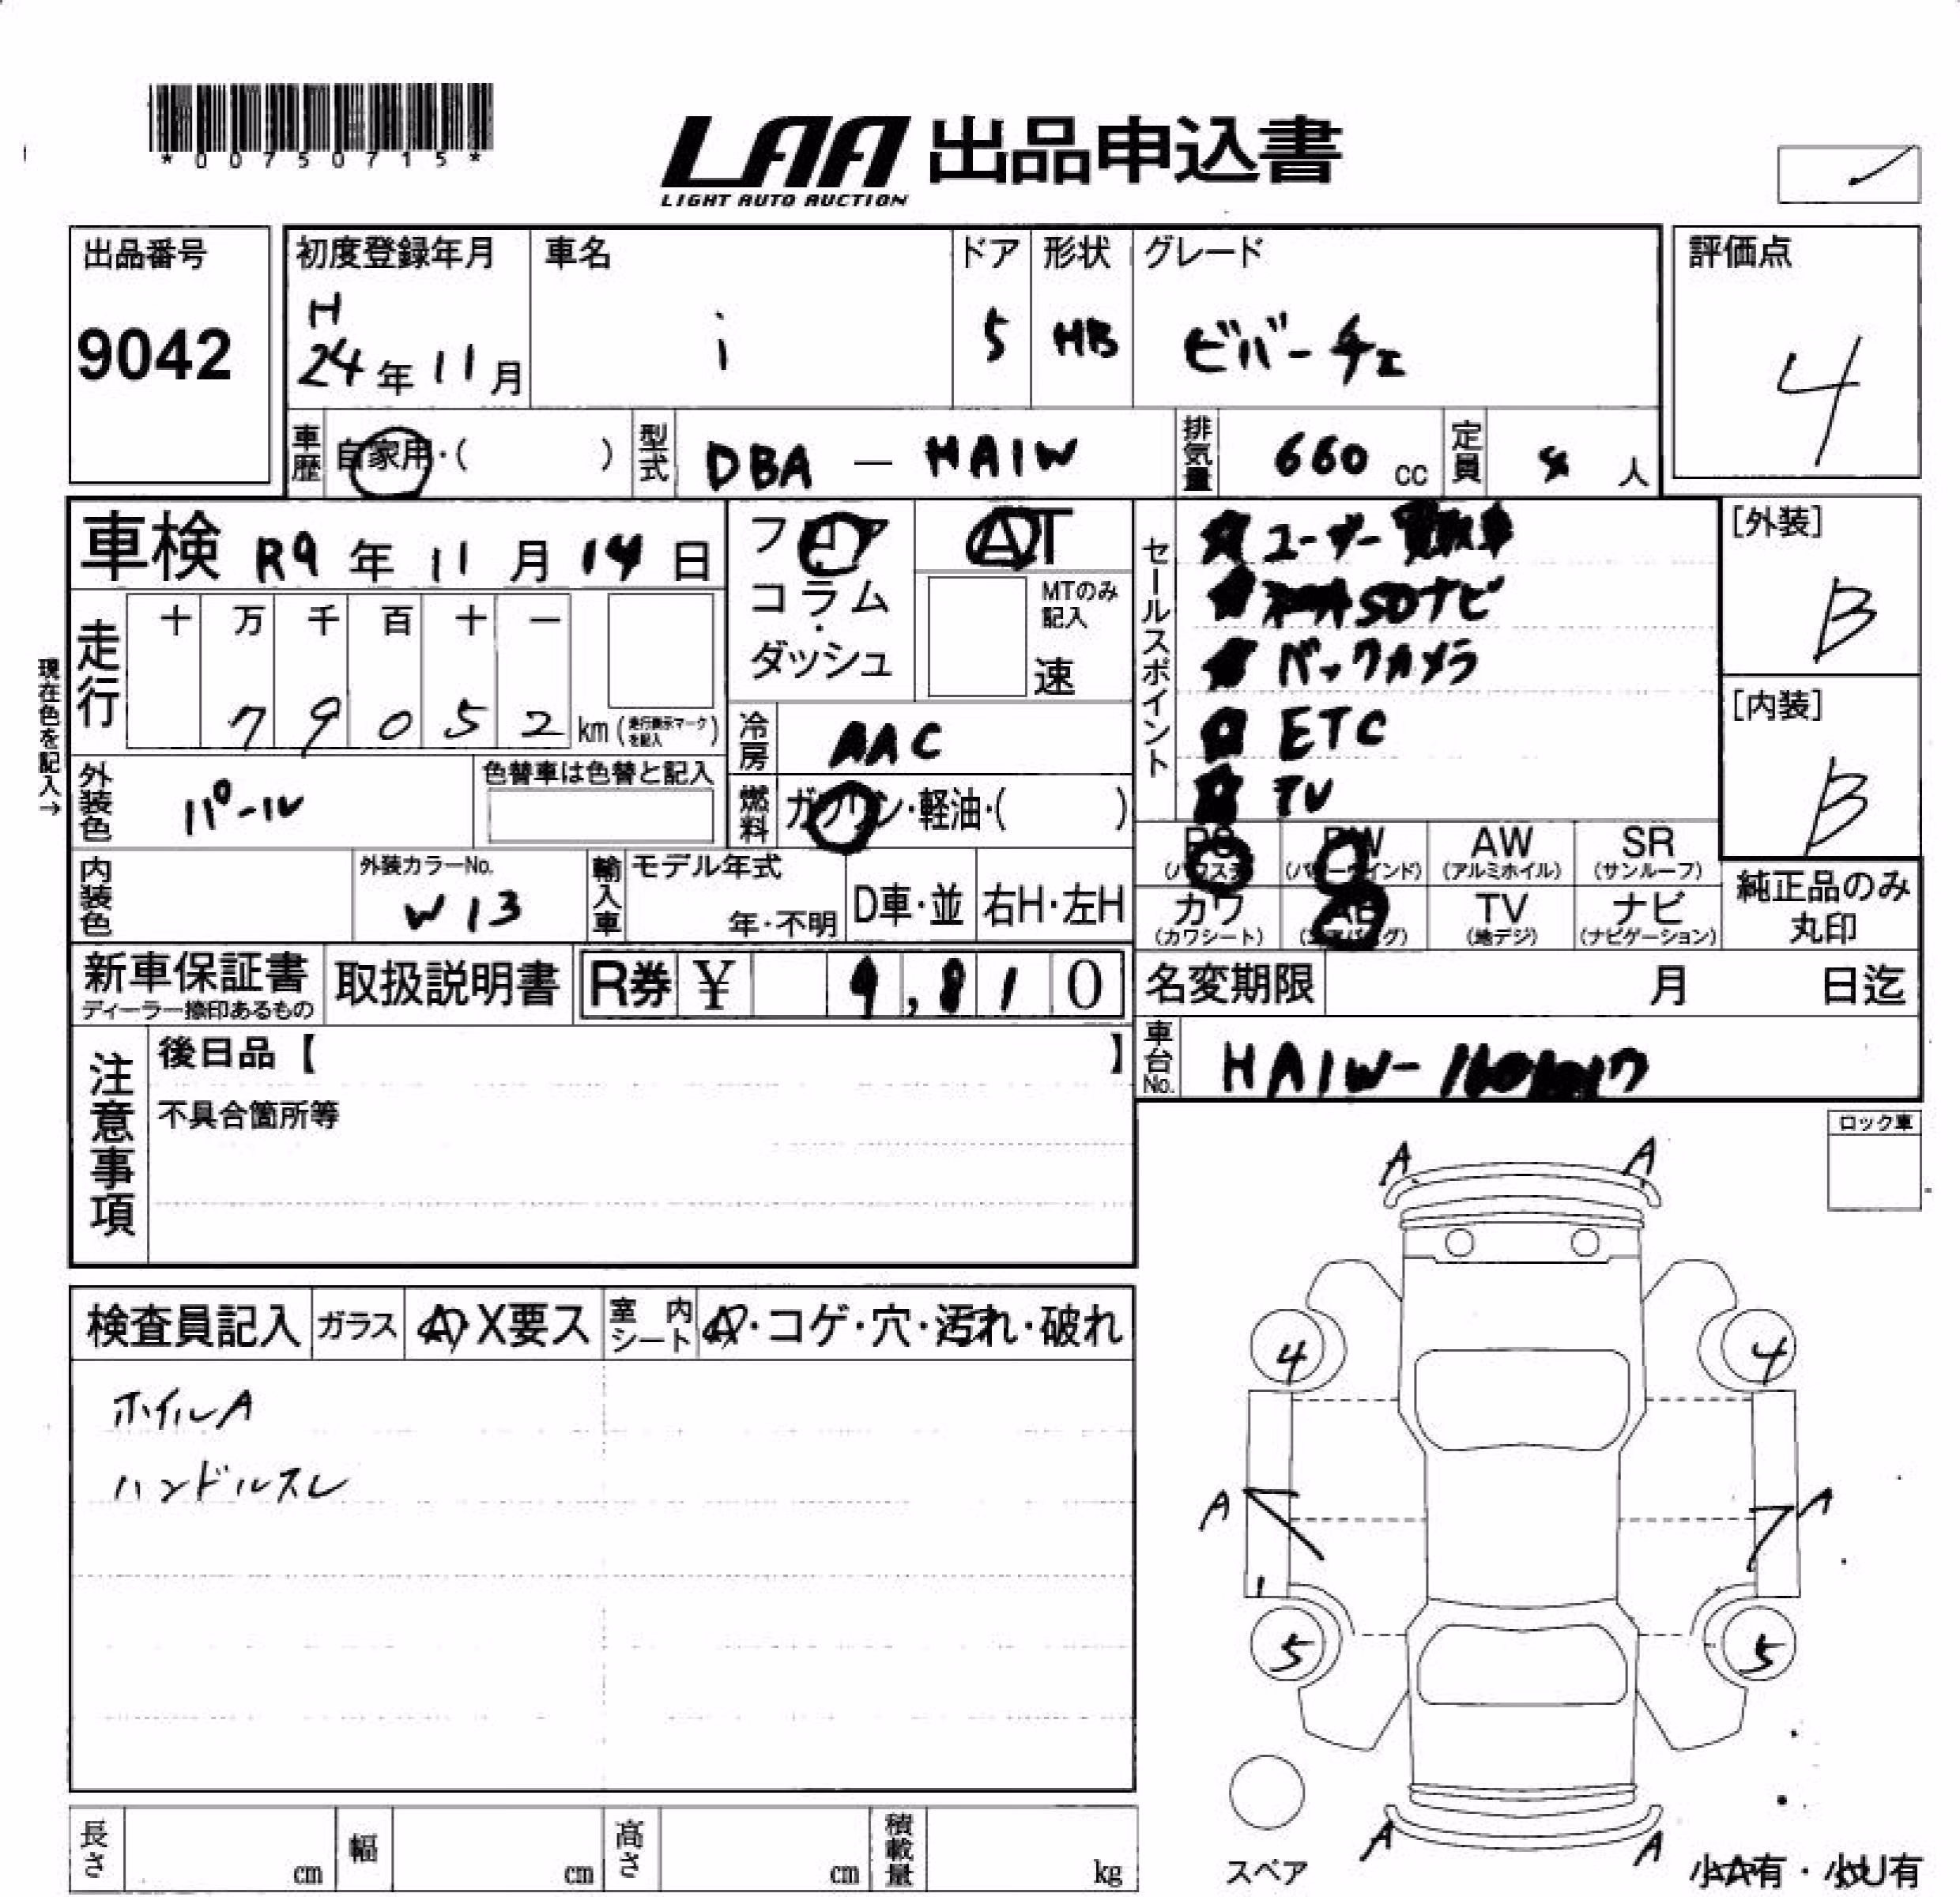 *00750715*
LAA 出品申込書
LIGHT AUTO AUCTION
出品番号
9042
初度登録年月
H
24年11月
車名
i
ドア
5
形状
HB
グレード
ビバーチェ
評価点
4
車歴
自家用・( )
型式
DBA — HA1W
排気量
660 cc
定員
4 人
車検 R9年11月14日
フロア
コラム・
ダッシュ
AT
MTのみ
記入
速
セールスポイント
ユーザー買取車
SDナビ
バックカメラ
ETC
TV
[外装]
B
[内装]
B
現在色を記入→
走行
十 万 千 百 十 一
7 9 0 5 2 km (走行表示マークを記入)
冷房
AAC
燃料
ガソリン・軽油・( )
外装色
パール
色替車は色替と記入
内装色
外装カラーNo.
W13
輸入車
モデル年式
年・不明
D車・並
右H・左H
PS
(パワステ)
PW
(パワーウインド)
AW
(アルミホイル)
SR
(サンルーフ)
カワ
(カワシート)
AB
(エアバッグ)
TV
(地デジ)
ナビ
(ナビゲーション)
純正品のみ
丸印
新車保証書
ディーラー捺印あるもの
取扱説明書
R券 ¥ 9,810
名変期限 月 日迄
車台No.
HA1W-
注意事項
後日品【 】
不具合箇所等
ロック車
検査員記入
ガラス
A・X要ス
室内シート
A・コゲ・穴・汚れ・破れ
ホイルA
ハンドルスレ
A A
4 4
A A
5 5
A A
スペア
小A有・小U有
長さ cm
幅 cm
高さ cm
積載量 kg